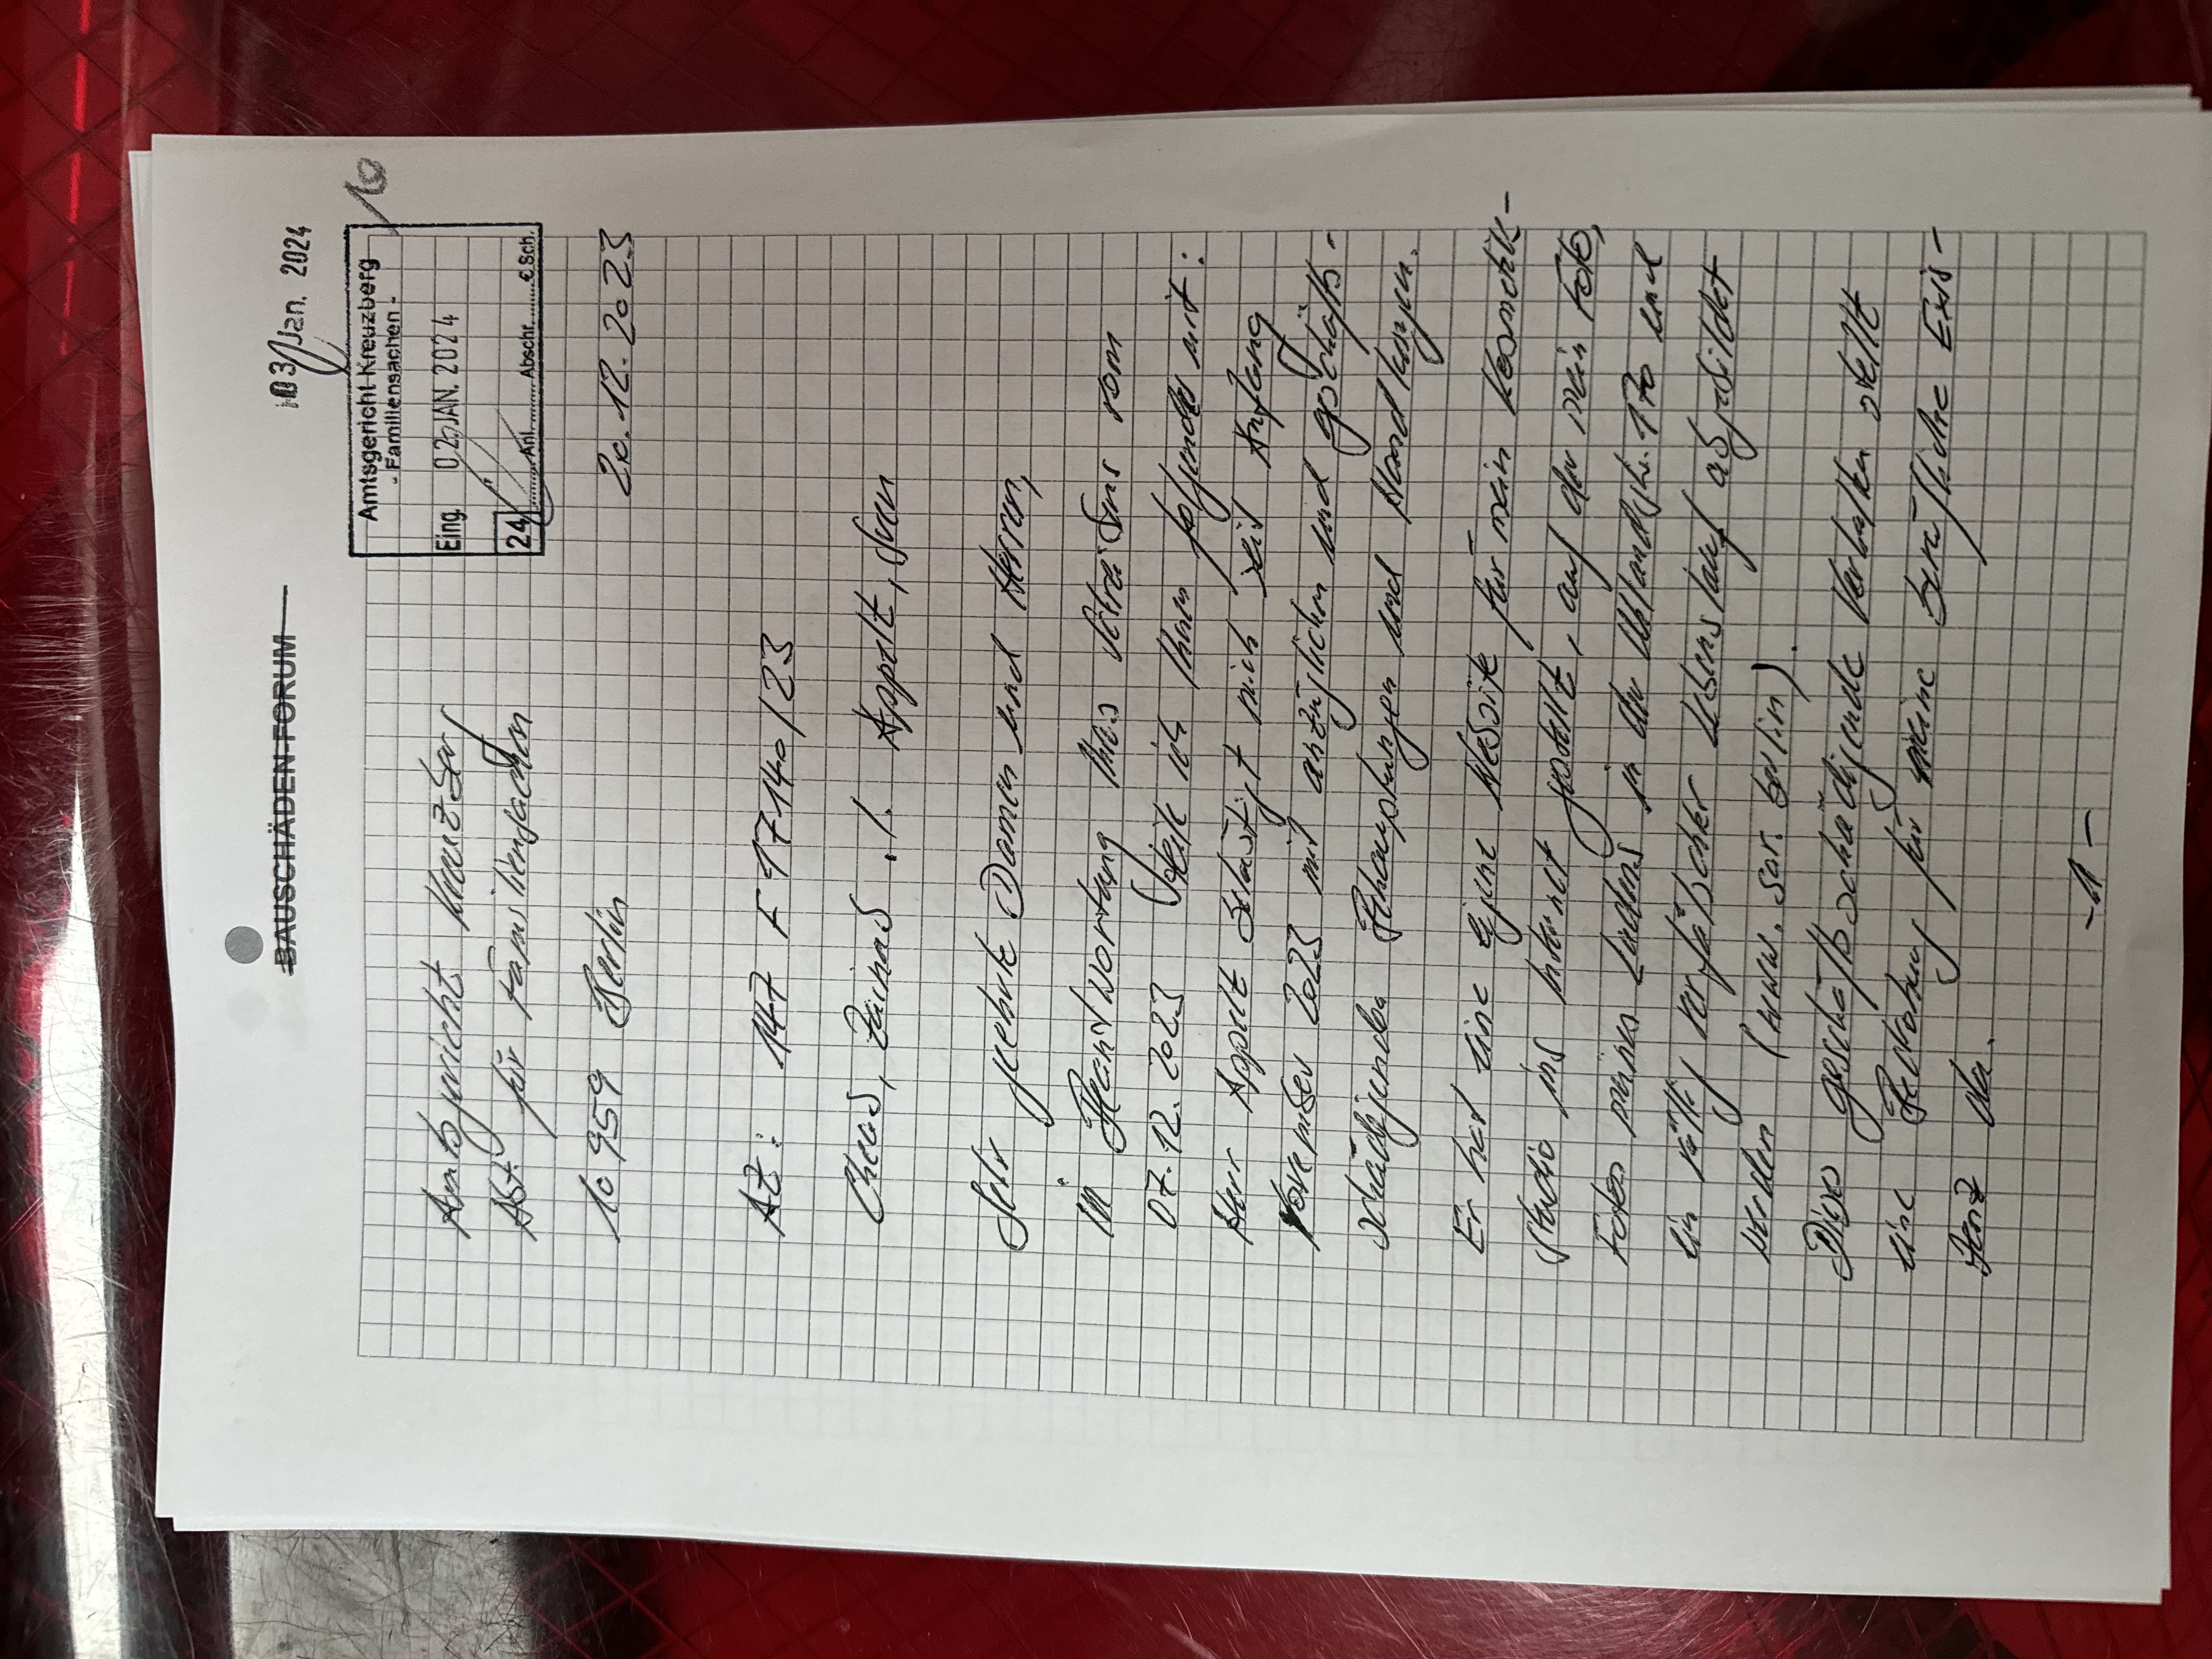 BAUSCHÄDEN-FORUM
03. Jan. 2024
Amtsgericht Kreuzberg
- Familiensachen -
Eing. 02. JAN. 2024
24 Anl. Abschr. € Sch.
10
Amtsgericht Kreuzberg
Abt. für Familiensachen
20.12.2023
10959 Berlin
AZ: 147 F 17140/23
./. Appelt, Sven
Sehr geehrte Damen und Herren,
in Beantwortung Ihres Schreibens vom
07.12.2023 teile ich Ihnen folgendes mit:
Herr Appelt belästigt mich seit Anfang
November 2023 mit anzüglichen und geschäfts-
schädigenden Behauptungen und Handlungen.
Er hat eine eigene Website für mein Kosmetik-
studio ins Internet gestellt, auf der mein Foto,
Fotos meines Ladens in der Uhlandstr. 170 und
ein völlig verfälschter Lebenslauf abgebildet
werden (www. bar. berlin).
Dieses geschäftsschädigende Verhalten stellt
eine Bedrohung für meine berufliche Exis-
tenz dar.
-1-